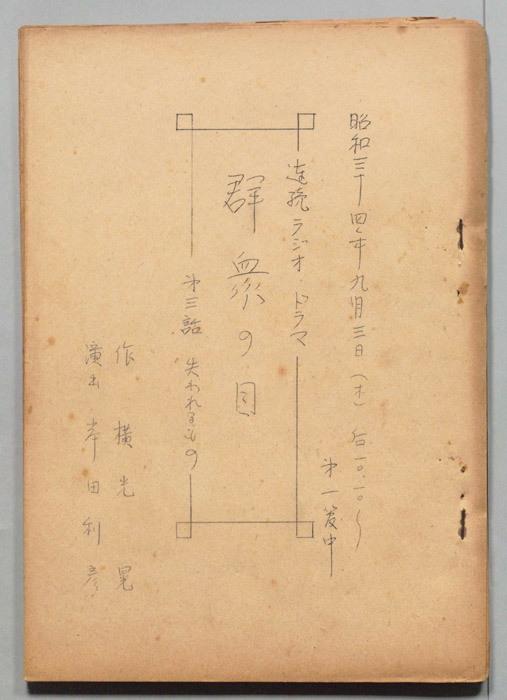 昭和三十四年九月三日（木）后一〇.一〇〜
第一護中
連続ラジオ・ドラマ
群衆の目
第三話 失われるもの
作 横光晃
演出 岸田利彦